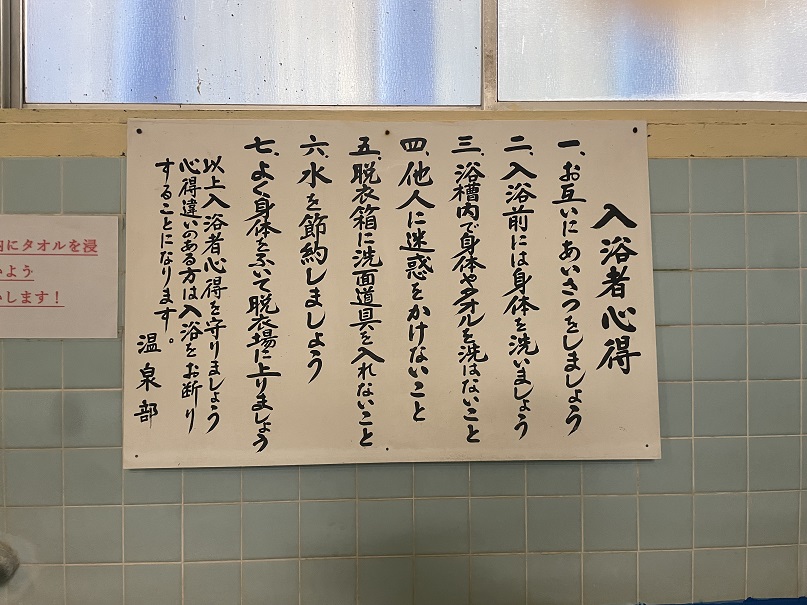 入浴者心得
一、お互いにあいさつをしましょう
二、入浴前には身体を洗いましょう
三、浴槽内で身体やタオルを洗はないこと
四、他人に迷惑をかけないこと
五、脱衣箱に洗面道具を入れないこと
六、水を節約しましょう
七、よく身体をふいて脱衣場に上りましょう
以上入浴者心得を守りましょう
心得違いのある方は入浴をお断り
することになります。
温泉部
内にタオルを浸
いよう
いします!